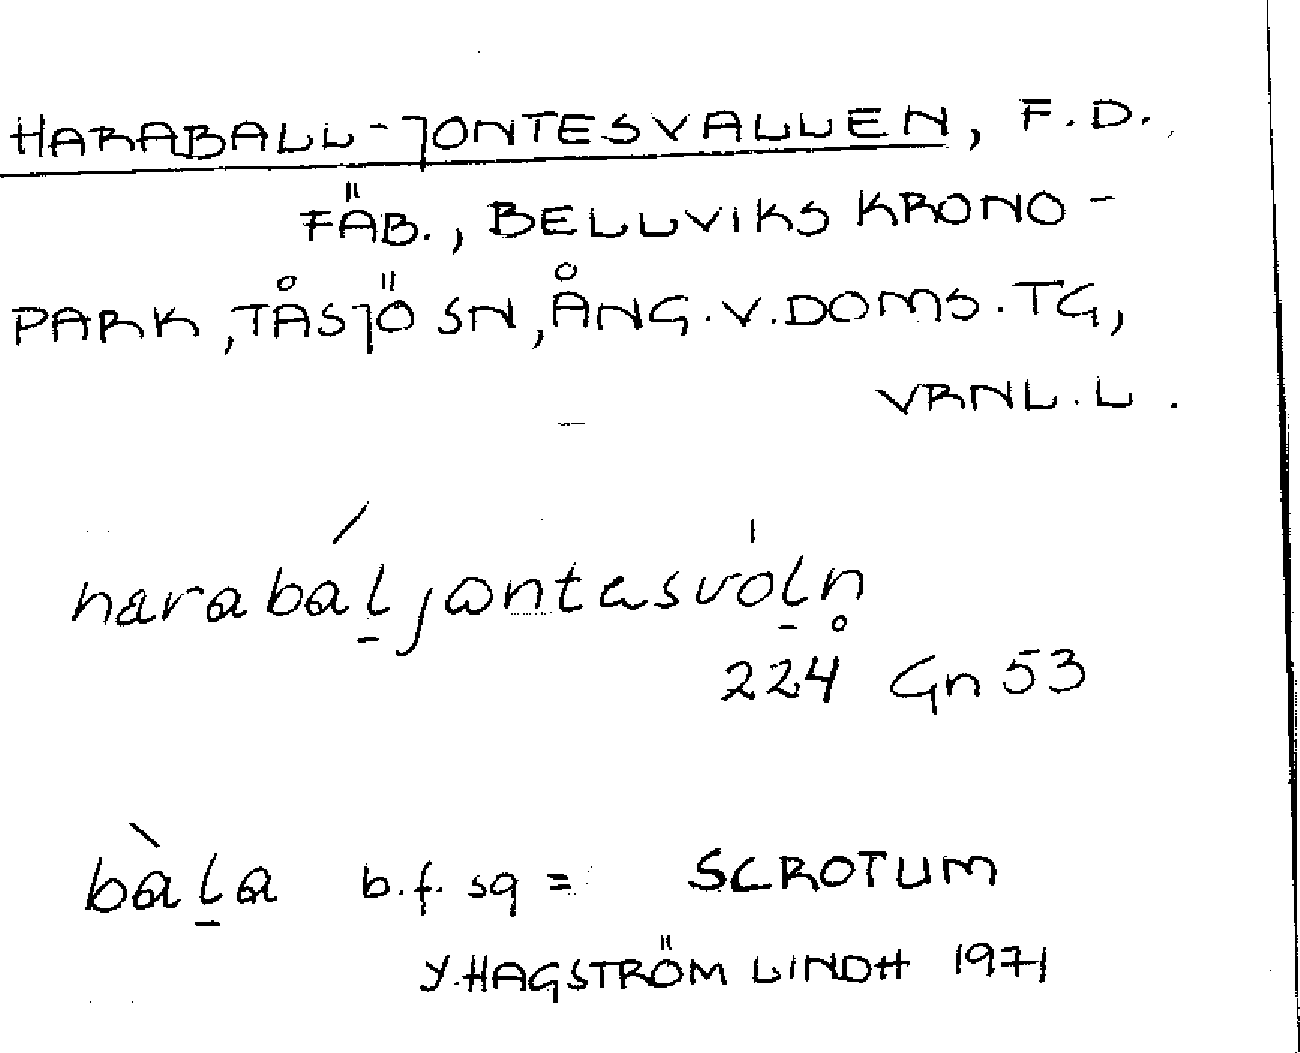 HARABALL-JONTESVALLEN, F.D.
FÄB., BELLVIKS KRONO-
PARK, TÅSJÖ SN, ÅNG.V.DOMS.TG,
VRNL.L.
harabáḻjɷntəsvóḻn̥
224 Gn 53
bàḻa b.f. sg = SCROTUM
Y. HAGSTRÖM LINDH 1971